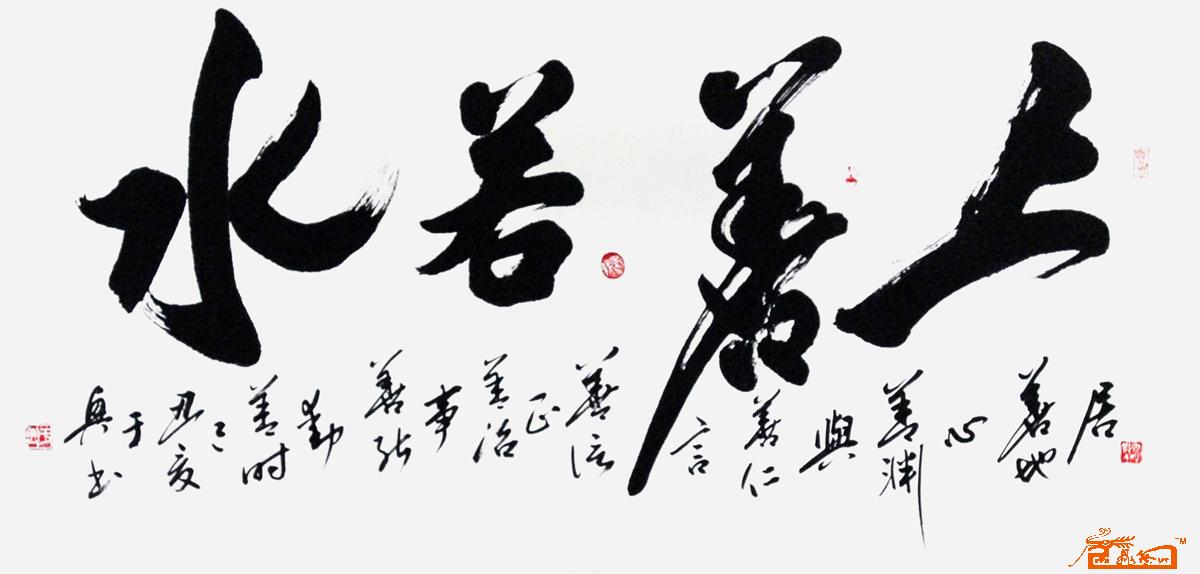 上善若水
居善地心善渊與善仁言善信正善治事善能動善时己丑夏于书